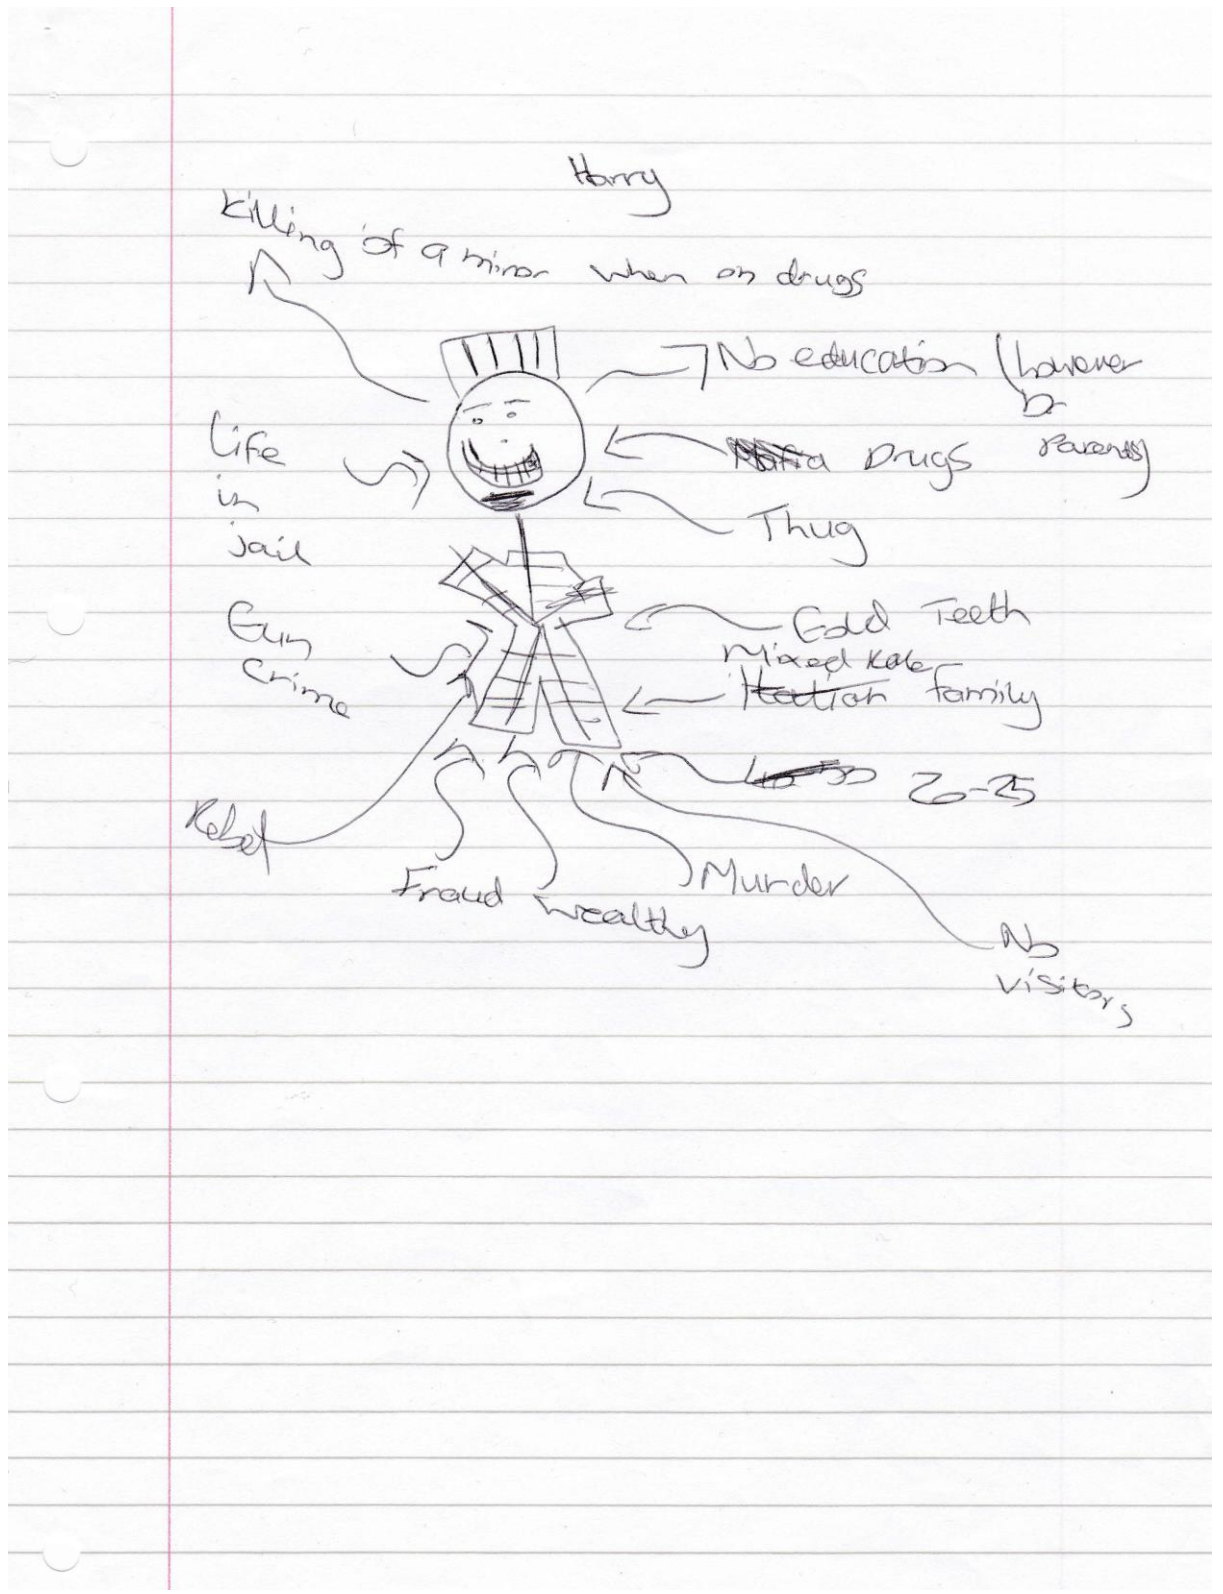 Harry
Killing of a minor when on drugs
No education (however
Parents)
Drugs
Life
in
jail
Thug
Gun
Crime
Gold Teeth
Mixed
family
20-25
Rebel
Fraud
wealthy
Murder
No
visitors